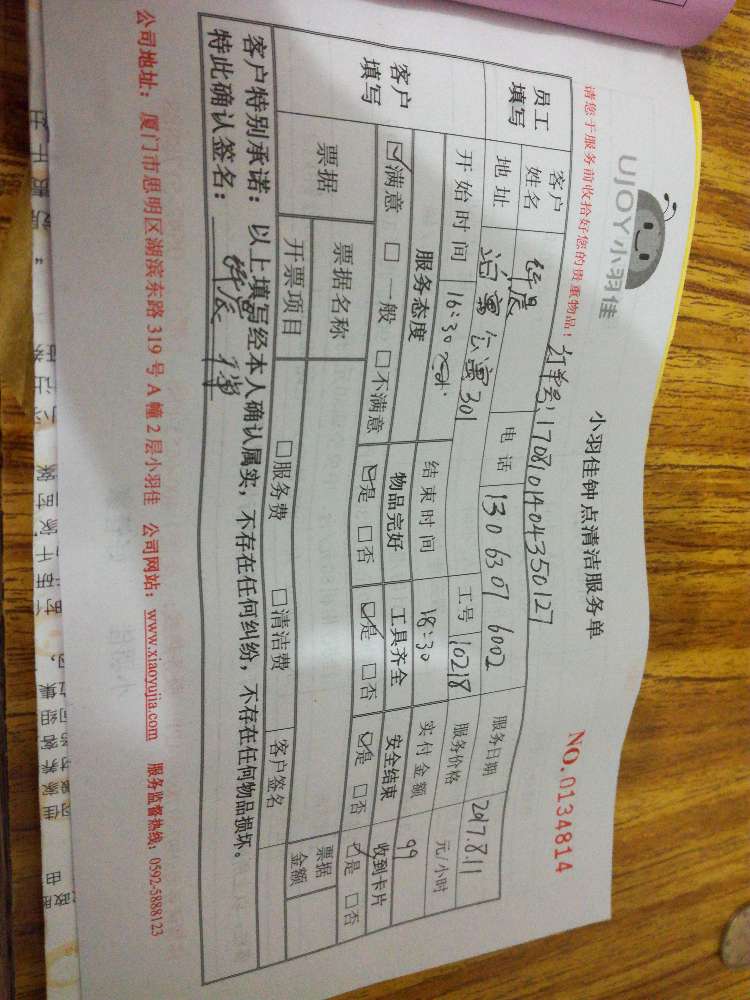 UJOY小羽佳
小羽佳钟点清洁服务单
NO.0134814
请您于服务前收拾好您的贵重物品！
订单号:1708101404350127
员工填写
客户姓名
电话 130 6307 6002
服务日期 2017.8.11
地址 公寓301
工号 10218
服务价格 元/小时
开始时间 16:30
结束时间 18:30
实付金额 99
客户填写
服务态度 物品完好 工具齐全 安全结束 收到卡片
☑满意 □一般 □不满意 ☑是 □否 ☑是 □否 ☑是 □否 ☑是 □否
票据
票据名称
客户签名
票据金额
开票项目 □服务费 □清洁费
客户特别承诺：以上填写经本人确认属实，不存在任何纠纷，不存在任何物品损坏。
特此确认签名：
公司地址：厦门市思明区湖滨东路319号A幢2层小羽佳 公司网站：www.xiaoyujia.com 服务监督热线：0592-5888123